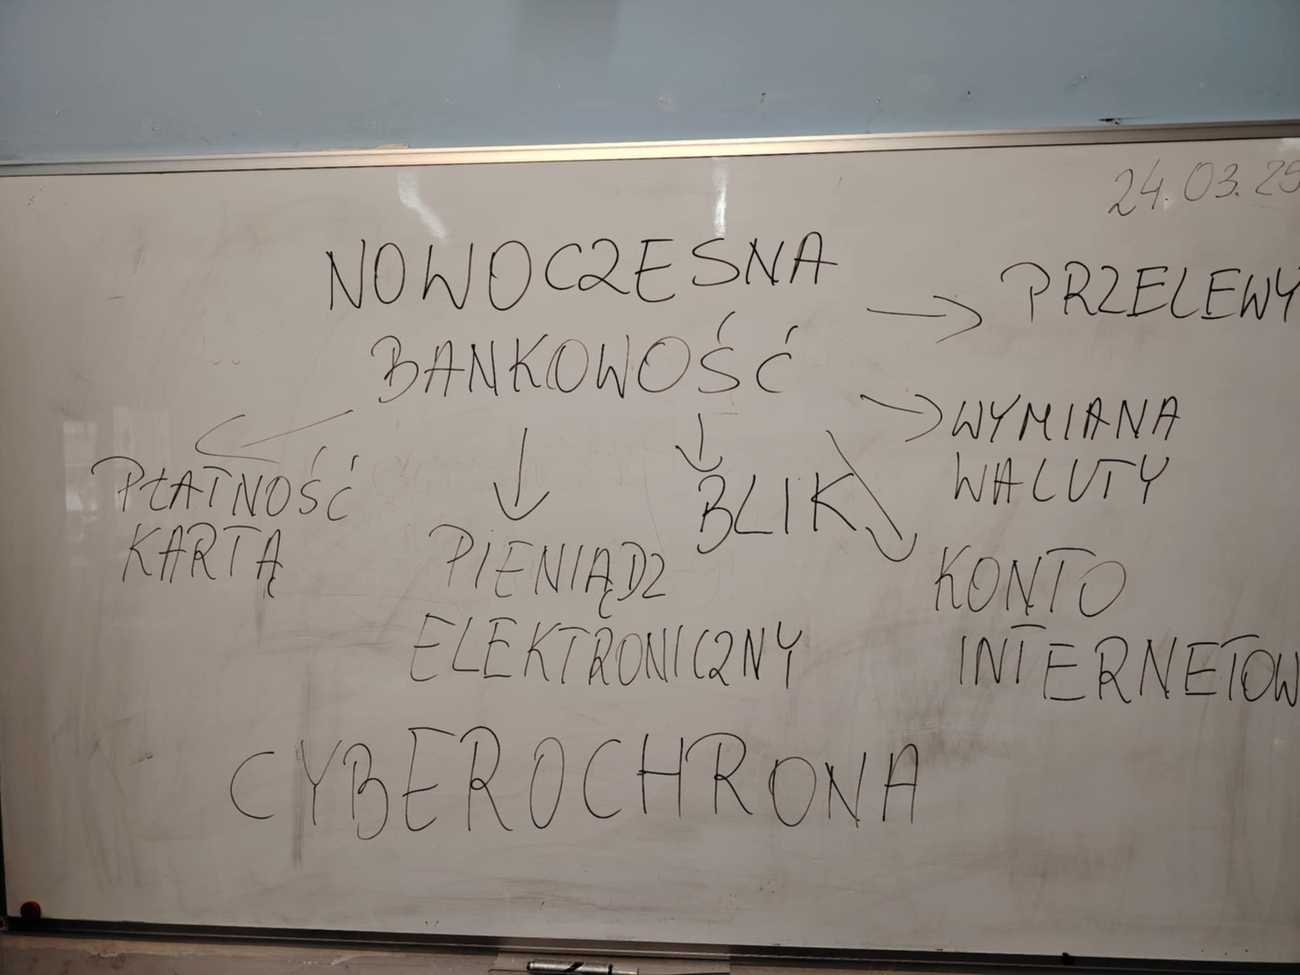 24.03.25
NOWOCZESNA
BANKOWOŚĆ
PRZELEWY
WYMIANA
WALUTY
PŁATNOŚĆ
KARTĄ
PIENIĄDZ
ELEKTRONICZNY
BLIK
KONTO
INTERNETOW
CYBEROCHRONA